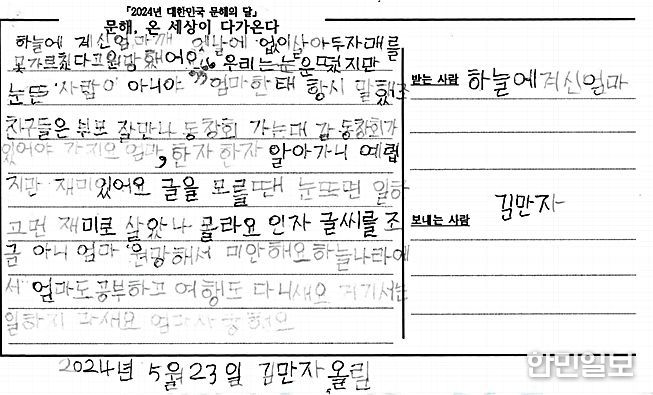 「2024년 대한민국 문해의 달」
문해, 온 세상이 다가온다
하늘에 계신엄마께 옛날에 없이살아두자매를
못가르쳤다고원망했어요 "우리는눈은떴지만
눈뜬 사람이 아니야" 엄마한태 항시 말했죠
친구들은 쉰프 잘만나 동창회 가는대 감 동창회가
있어야 가지요 엄마, 한자 한자 알아가니 예렵
지만 재미있어요 글을 모를때넌 눈뜨면 일하
고먼 재미로 살았나 몰라요 인자 글씨를 조
금 아니 엄마 원망해서 미안해요하늘나라에
서 엄마도공부하고 여행도 다니새요 거기서는
일하지 마세요 엄마사랑해요
받는 사람 하늘에계신엄마
보내는 사람 김만자
2024년 5월23일 김만자 올린
한민일보